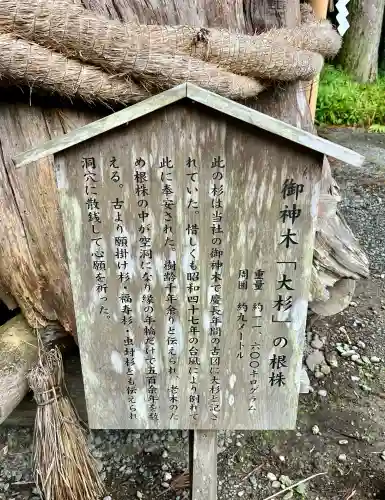 御神木「大杉」の根株
重量　約二、六〇〇キログラム
周囲　約九メートル
此の杉は当社の御神木で慶長年間の古図に大杉と記さ
れていた。惜しくも昭和四十七年の台風により倒れて
此に奉安された。樹齢千年余りと伝えられ、老木のた
め根株の中が空洞になり縁の年輪だけで五百余年を
数える。古より願掛け杉・福寿杉・虫封杉とも伝えられ
洞穴に散銭して心願を祈った。